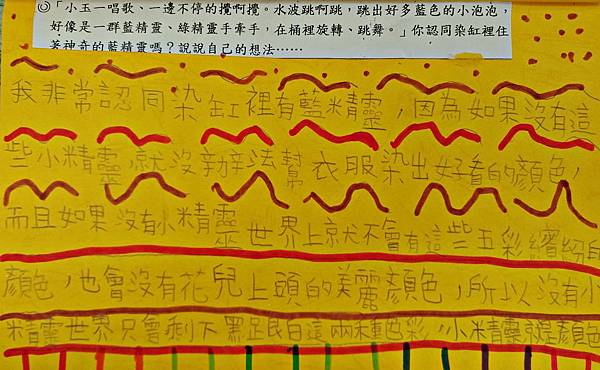 ◎「小玉一唱歌、一邊不停的攪啊攪。水波跳啊跳，跳出好多藍色的小泡泡，
好像是一群藍精靈、綠精靈手牽手，在桶裡旋轉、跳舞。」你認同染缸裡住
著神奇的藍精靈嗎？說說自己的想法……
我非常認同染缸裡有藍精靈，因為如果沒有這
些小精靈，就沒辦法幫衣服染出好看的顏色，
而且如果沒有小精靈世界上就不會有這些五彩繽紛的
顏色，也會沒有花兒上頭的美麗顏色，所以沒有小
精靈世界只會剩下黑足艮白這兩種色彩，小精靈就是顏色